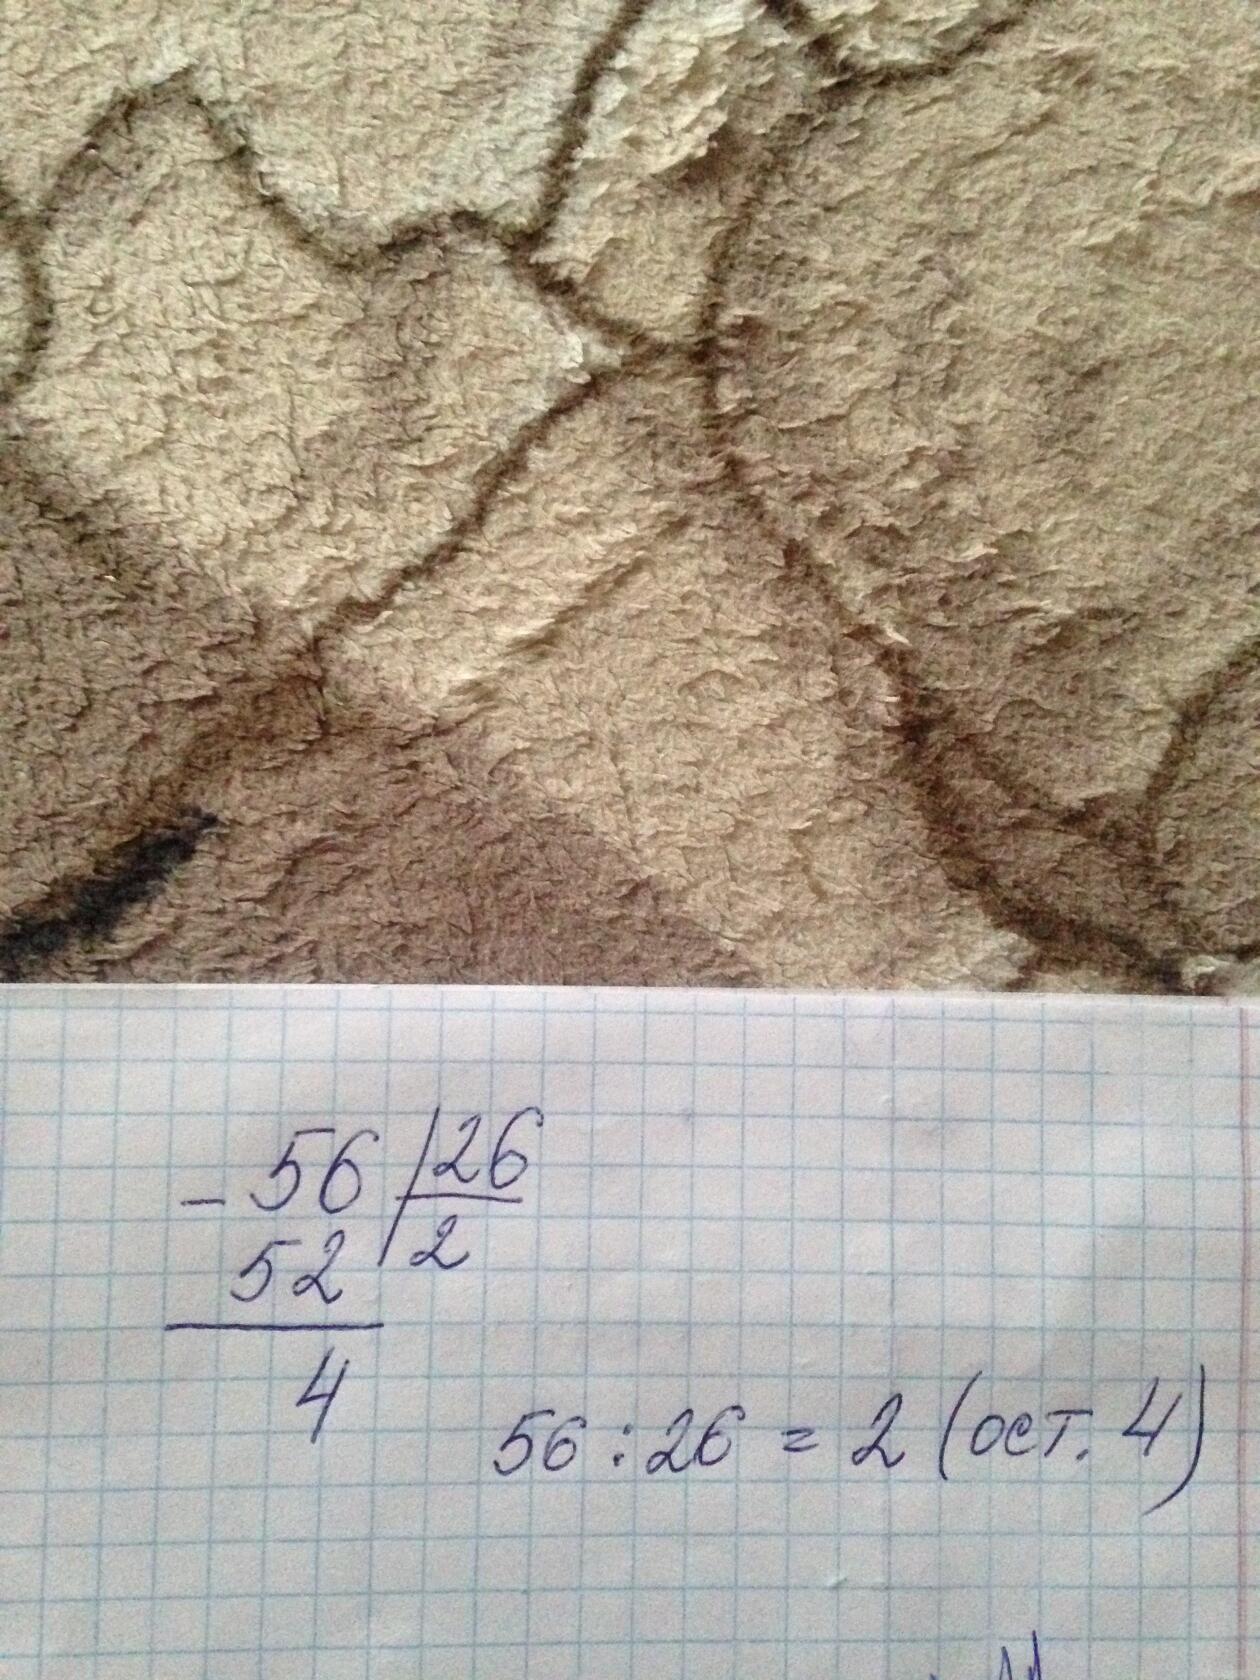 - 56 | 26
52 | 2
4
56 : 26 = 2 (ост. 4)